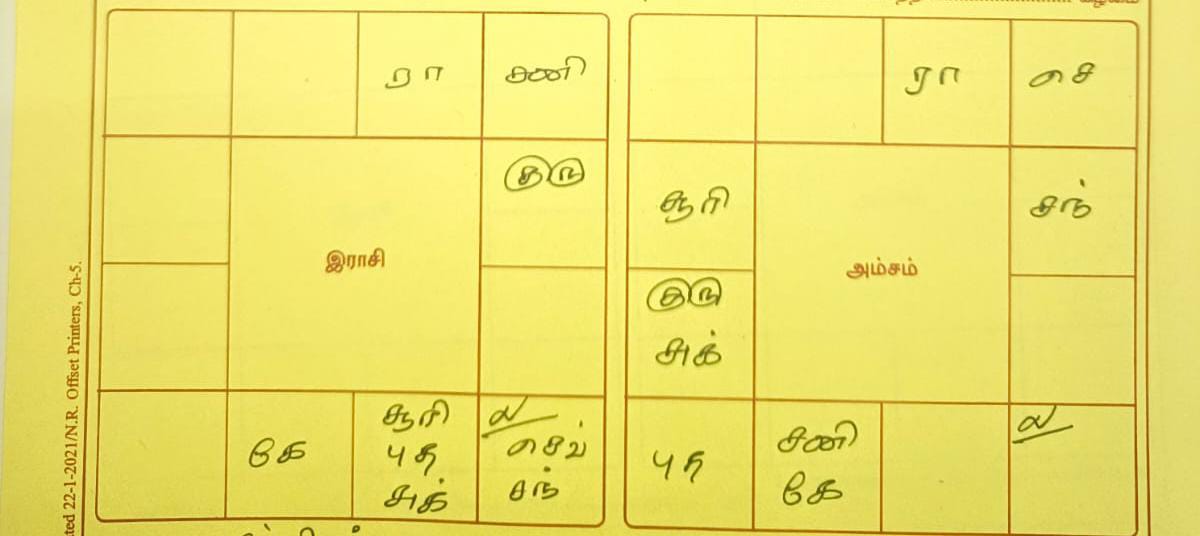 ரா
சனி
குரு
இராசி
கே
சூரி
புத
சுக்
ல
செவ்
சந்
ரா
செ
சூரி
சந்
அம்சம்
குரு
சுக்
புத
சனி
கே
ல
ted 22-1-2021/N.R. Offset Printers, Ch-5.